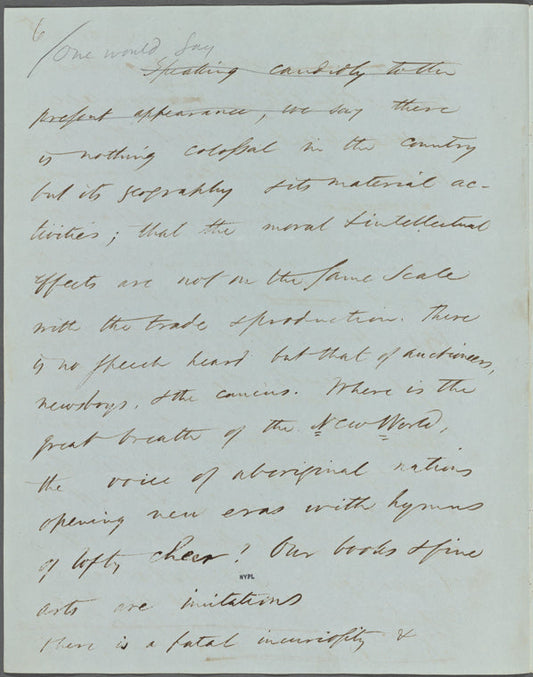 6
/One would say
Speaking candidly to the
present appearance, we say there
is nothing colossal in the country
but its geography & its material ac-
tivities; that the moral & intellectual
effects are not on the same scale
with the trade & production. There
is no speech heard but that of auctioneers,
newsboys, & the caucus. Where is the
great breath of the New World,
the voice of aboriginal nations
opening new eras with hymns
of lofty cheer? Our books & fine
arts are imitations
NYPL
there is a fatal incuriosity &